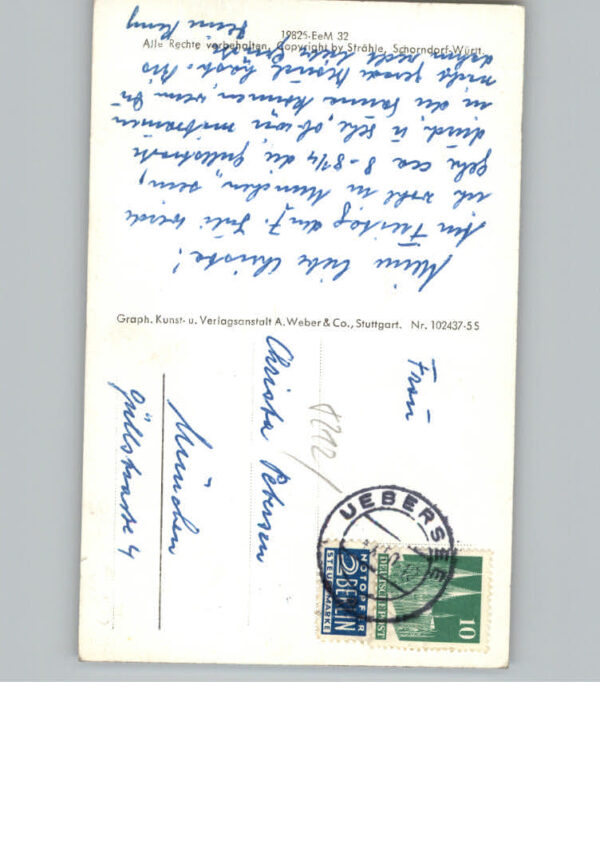 19825-EeM 32
Alle Rechte vorbehalten. Copyright by Strähle, Schorndorf-Württ.
Meine liebe Christa!
Am Freitag den 7. Juli werde
ich wohl in München sein,
gehe cca 8-8¼ die Güllstraße
durch,
in die Sonne können, wenn Du
nicht gerade Besuch hast. Bis
dahin recht liebe Grüße
Deine
Graph. Kunst- u. Verlagsanstalt A. Weber & Co., Stuttgart. Nr. 102437-5S
Frau
Christa Petersen
München
Güllstrasse 4
UEBERSEE
NOTOPFER
2 BERLIN
STEUERMARKE
DEUTSCHE POST
10